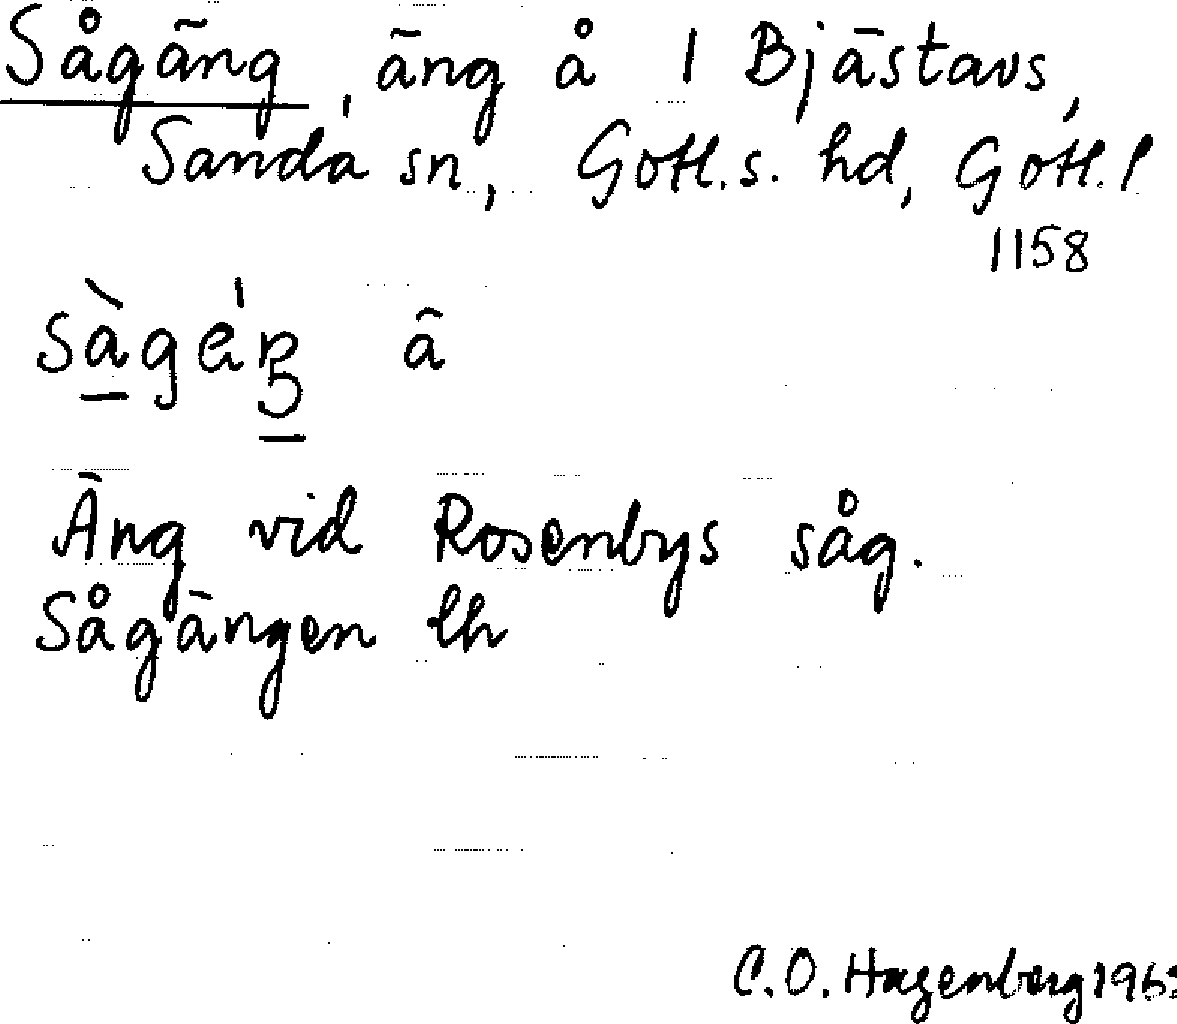 Sågäng, äng å 1 Bjästavs,
Sanda sn, Gotl.s. hd, Gotl. l
1158
Äng vid Rosenbys såg.
Sågängen lh
C.O. Hagenberg